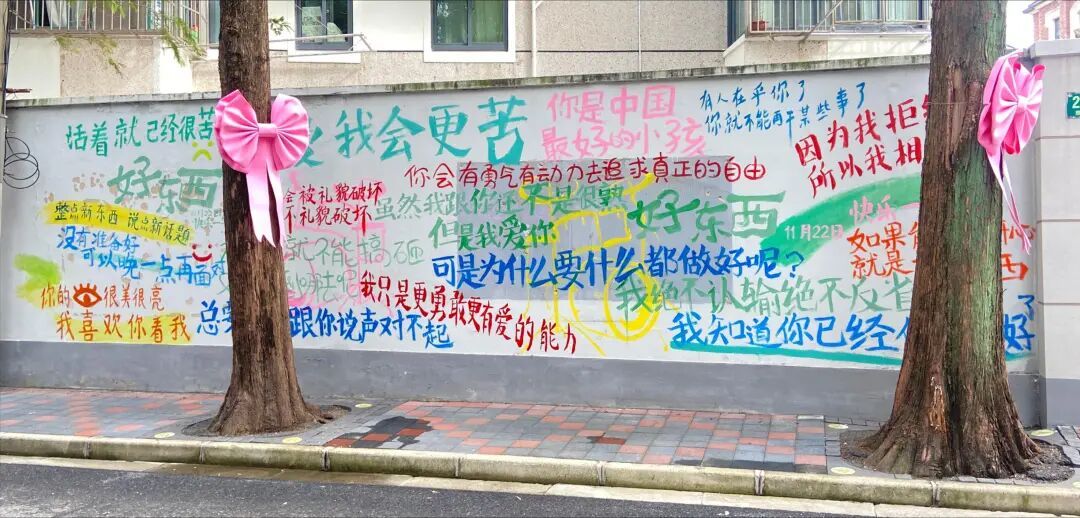 活着就已经很苦
我会更苦
你是中国
最好的小孩
有人在乎你了
你就不能再干某些事了
因为我拒
所以我相
好东西
你会有勇气有动力去追求真正的自由
会被礼貌破坏
不礼貌破坏
虽然我跟你还不是很熟
但是我爱你
好东西
快乐
11月22日
整点新东西 说点新话题
没有准备好
可以晚一点再面对
就不能搞砸
可是为什么要什么都做好呢?
如果
就是
西
你的
很美很亮
我喜欢你看我
我只是更勇敢更有爱的能力
我绝不认输绝不反省
总要
跟你说声对不起
我知道你已经
好了
2